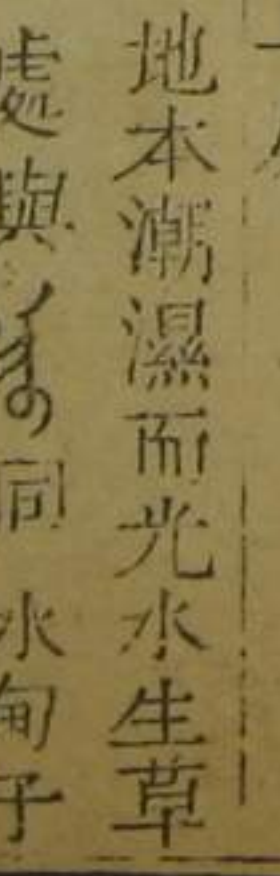 地本潮濕而光水生草
處與
同 水甸子